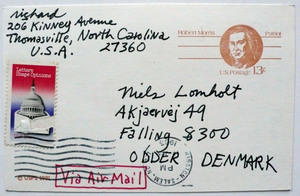 richard
206 Kinney Avenue
Thomasville, North Carolina
U.S.A. 27360
Robert Morris Patriot
U.S. Postage 13¢
Letters
Shape Opinions
Niels Lomholt
Akjaervej 49
Falling 8300
ODDER DENMARK
PM
Via Air Mail